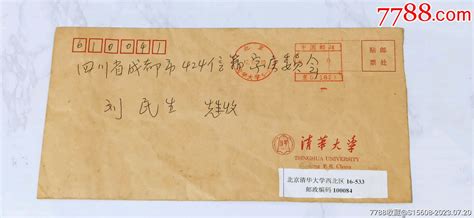 7788.com
610041
贴邮
票处
中国邮政
四川省成都市424信箱
刘民生 先生收
清华大学
TSINGHUA UNIVERSITY
北京清华大学西北区 16-533
邮政编码 100084
7788收藏@S15608-2023.07.20